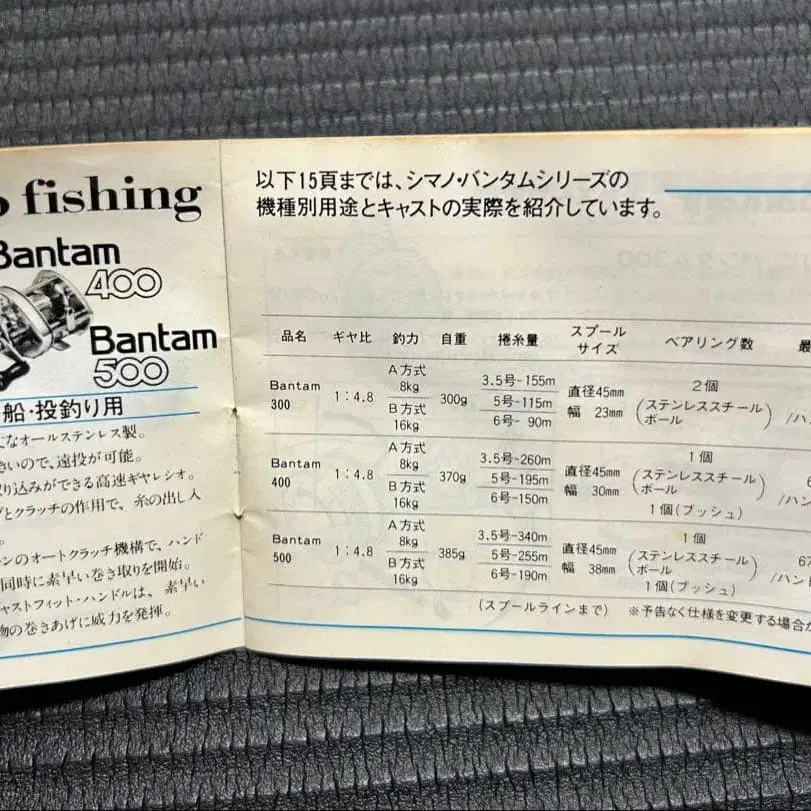 fishing
Bantam
400
Bantam
500
船・投釣り用
なオールステンレス製。
きいので、遠投が可能。
り込みができる高速ギヤレシオ。
とクラッチの作用で、糸の出し入
。
ンのオートクラッチ機構で、ハンド
同時に素早い巻き取りを開始。
ャストフィット・ハンドルは、素早い
物の巻きあげに威力を発揮。
以下15頁までは、シマノ・バンタムシリーズの
機種別用途とキャストの実際を紹介しています。
品名 ギヤ比 釣力 自重 捲糸量 スプールサイズ ベアリング数 最
Bantam 300 1:4.8 A方式 8kg B方式 16kg 300g 3.5号-155m 5号-115m 6号- 90m 直径45mm 幅 23mm 2個 (ステンレススチールボール) /ハ
Bantam 400 1:4.8 A方式 8kg B方式 16kg 370g 3.5号-260m 5号-195m 6号-150m 直径45mm 幅 30mm 1個 (ステンレススチールボール) 1個(ブッシュ) 6 /ハン
Bantam 500 1:4.8 A方式 8kg B方式 16kg 385g 3.5号-340m 5号-255m 6号-190m 直径45mm 幅 38mm 1個 (ステンレススチールボール) 1個(ブッシュ) 67 /ハン
(スプールラインまで) ※予告なく仕様を変更する場合が